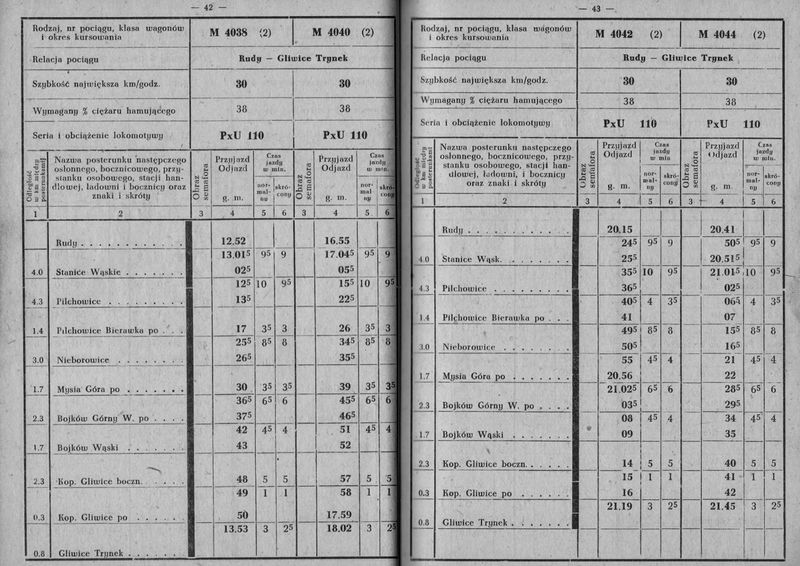 — 42 —
Rodzaj, nr pociągu, klasa wagonów i okres kursowania M 4038 (2) M 4040 (2)
Relacja pociągu Rudy — Gliwice Trynek
Szybkość największa km/godz. 30 30
Wymagany % ciężaru hamującego 38 38
Seria i obciążenie lokomotywy PxU 110 PxU 110
Odległość w km między posterunkami
Nazwa posterunku następczego
osłonnego, bocznicowego, przy-
stanku osobowego, stacji han-
dlowej, ładowni i bocznicy oraz
znaki i skróty
Obraz semafora Przyjazd Odjazd g. m. Czas jazdy w min. nor- mal- ny skró- cony
Obraz semafora Przyjazd Odjazd g. m. Czas jazdy w min. nor- mal- ny skró- cony
1 2 3 4 5 6 3 4 5 6
Rudy 12.52 16.55
13.01⁵ 9⁵ 9 17.04⁵ 9⁵ 9
4.0 Stanice Wąskie 02⁵ 05⁵
12⁵ 10 9⁵ 15⁵ 10 9⁵
4.3 Pilchowice 13⁵ 22⁵
1.4 Pilchowice Bierawka po 17 3⁵ 3 26 3⁵ 3
25⁵ 8⁵ 8 34⁵ 8⁵ 8
3.0 Nieborowice 26⁵ 35⁵
1.7 Mysia Góra po 30 3⁵ 3⁵ 39 3⁵ 3⁵
36⁵ 6⁵ 6 45⁵ 6⁵ 6
2.3 Bojków Górny W. po 37⁵ 46⁵
42 4⁵ 4 51 4⁵ 4
1.7 Bojków Wąski 43 52
2.3 Kop. Gliwice boczn. 48 5 5 57 5 5
49 1 1 58 1 1
0.3 Kop. Gliwice po 50 17.59
13.53 3 2⁵ 18.02 3 2⁵
0.8 Gliwice Trynek
— 43 —
Rodzaj, nr pociągu, klasa wagonów i okres kursowania M 4042 (2) M 4044 (2)
Relacja pociągu Rudy — Gliwice Trynek
Szybkość największa km/godz. 30 30
Wymagany % ciężaru hamującego 38 38
Seria i obciążenie lokomotywy PxU 110 PxU 110
Odległość w km między posterunkami
Nazwa posterunku następczego
osłonnego, bocznicowego, przy-
stanku osobowego, stacji han-
dlowej, ładowni, i bocznicy
oraz znaki i skróty
Obraz semafora Przyjazd Odjazd g. m. Czas jazdy w min nor- mal- ny skró- cony
Obraz semafora Przyjazd Odjazd g. m. Czas jazdy w min. nor- mal- ny skró- cony
1 2 3 4 5 6 3 4 5 6
Rudy 20.15 20.41
24⁵ 9⁵ 9 50⁵ 9⁵ 9
4.0 Stanice Wąsk. 25⁵ 20.51⁵
35⁵ 10 9⁵ 21.01⁵ 10 9⁵
4.3 Pilchowice 36⁵ 02⁵
40⁵ 4 3⁵ 06⁵ 4 3⁵
1.4 Pilchowice Bierawka po 41 07
49⁵ 8⁵ 8 15⁵ 8⁵ 8
3.0 Nieborowice 50⁵ 16⁵
55 4⁵ 4 21 4⁵ 4
1.7 Mysia Góra po 20.56 22
21.02⁵ 6⁵ 6 28⁵ 6⁵ 6
2.3 Bojków Górny W. po 03⁵ 29⁵
08 4⁵ 4 34 4⁵ 4
1.7 Bojków Wąski 09 35
2.3 Kop. Gliwice boczn. 14 5 5 40 5 5
15 1 1 41 1 1
0.3 Kop. Gliwice po 16 42
21.19 3 2⁵ 21.45 3 2⁵
0.8 Gliwice Trynek